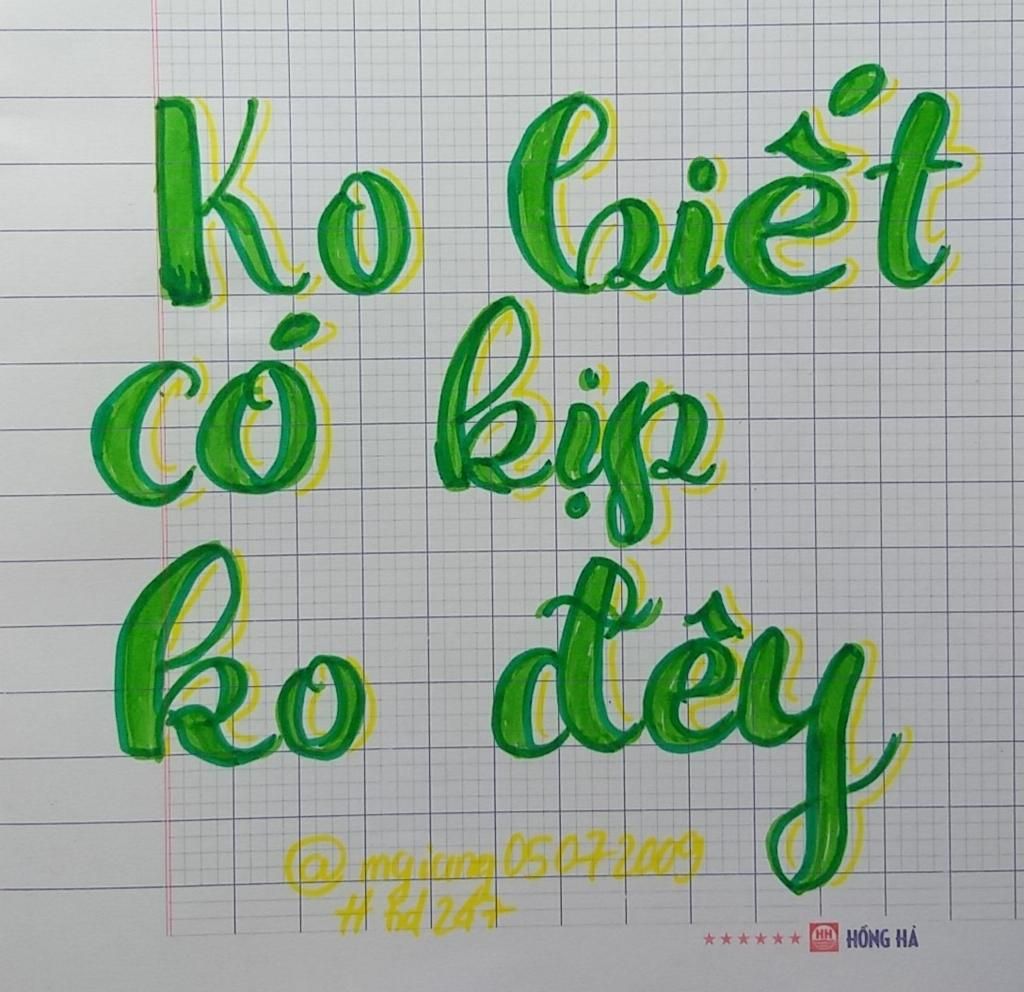 Ko biết
có kịp
ko đêy
@mgiang05072009
#hd247
HỒNG HÀ